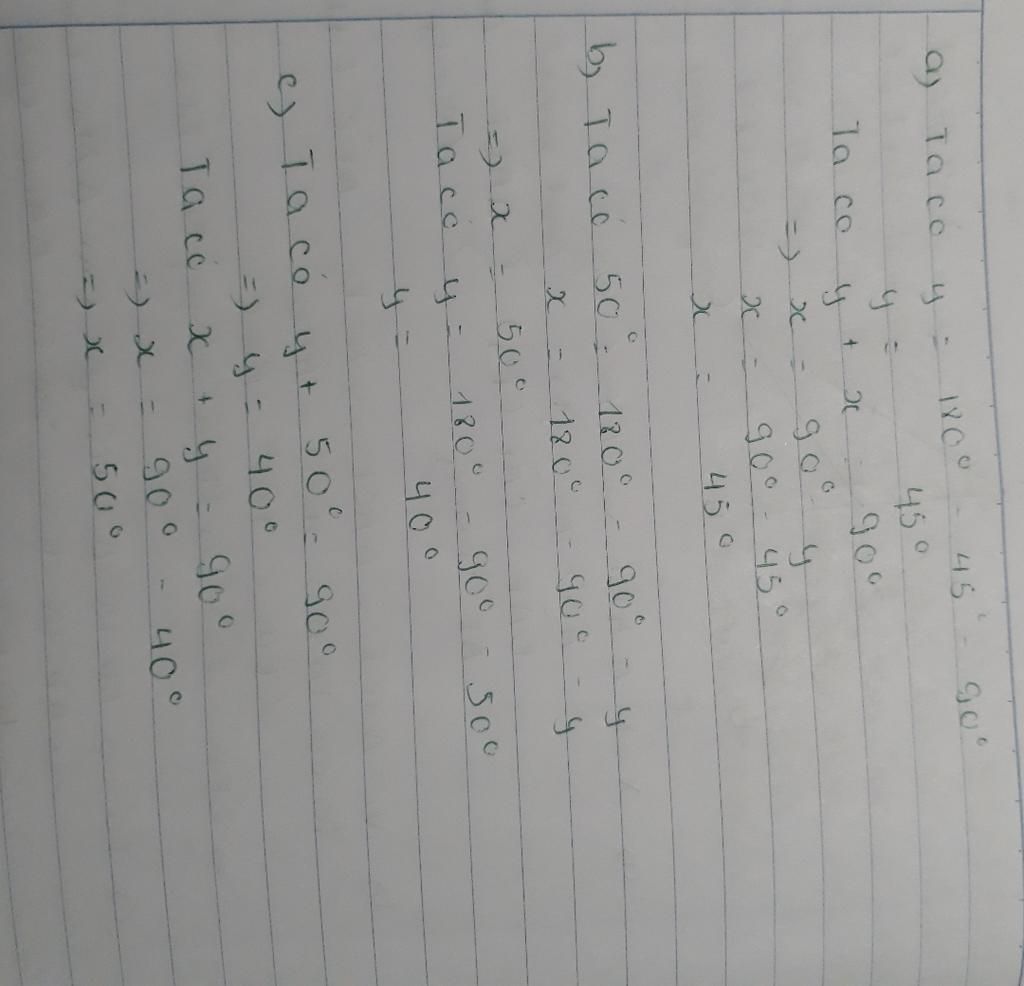 a) Ta có y = 180° - 45° - 90°
y = 45°
Ta co y + x = 90°
=> x = 90° - y
x = 90° - 45°
x = 45°
b) Ta có 50° = 180° - 90° - y
x = 180° - 90° - y
=> x = 50°
Ta có y = 180° - 90° - 50°
y = 40°
c) Ta có y + 50° = 90°
=> y = 40°
Ta có x + y = 90°
=> x = 90° - 40°
=> x = 50°